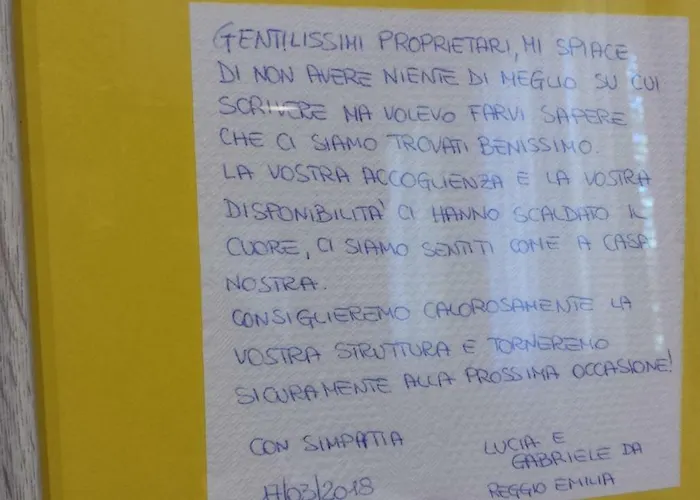 GENTILISSIMI PROPRIETARI, MI SPIACE
DI NON AVERE NIENTE DI MEGLIO SU CUI
SCRIVERE MA VOLEVO FARVI SAPERE
CHE CI SIAMO TROVATI BENISSIMO.
LA VOSTRA ACCOGLIENZA E LA VOSTRA
DISPONIBILITA' CI HANNO SCALDATO IL
CUORE, CI SIAMO SENTITI COME A CASA
NOSTRA.
CONSIGLIEREMO CALOROSAMENTE LA
VOSTRA STRUTTURA E TORNEREMO
SICURAMENTE ALLA PROSSIMA OCCASIONE!
CON SIMPATIA
17/03/2018
LUCIA E
GABRIELE DA
REGGIO EMILIA